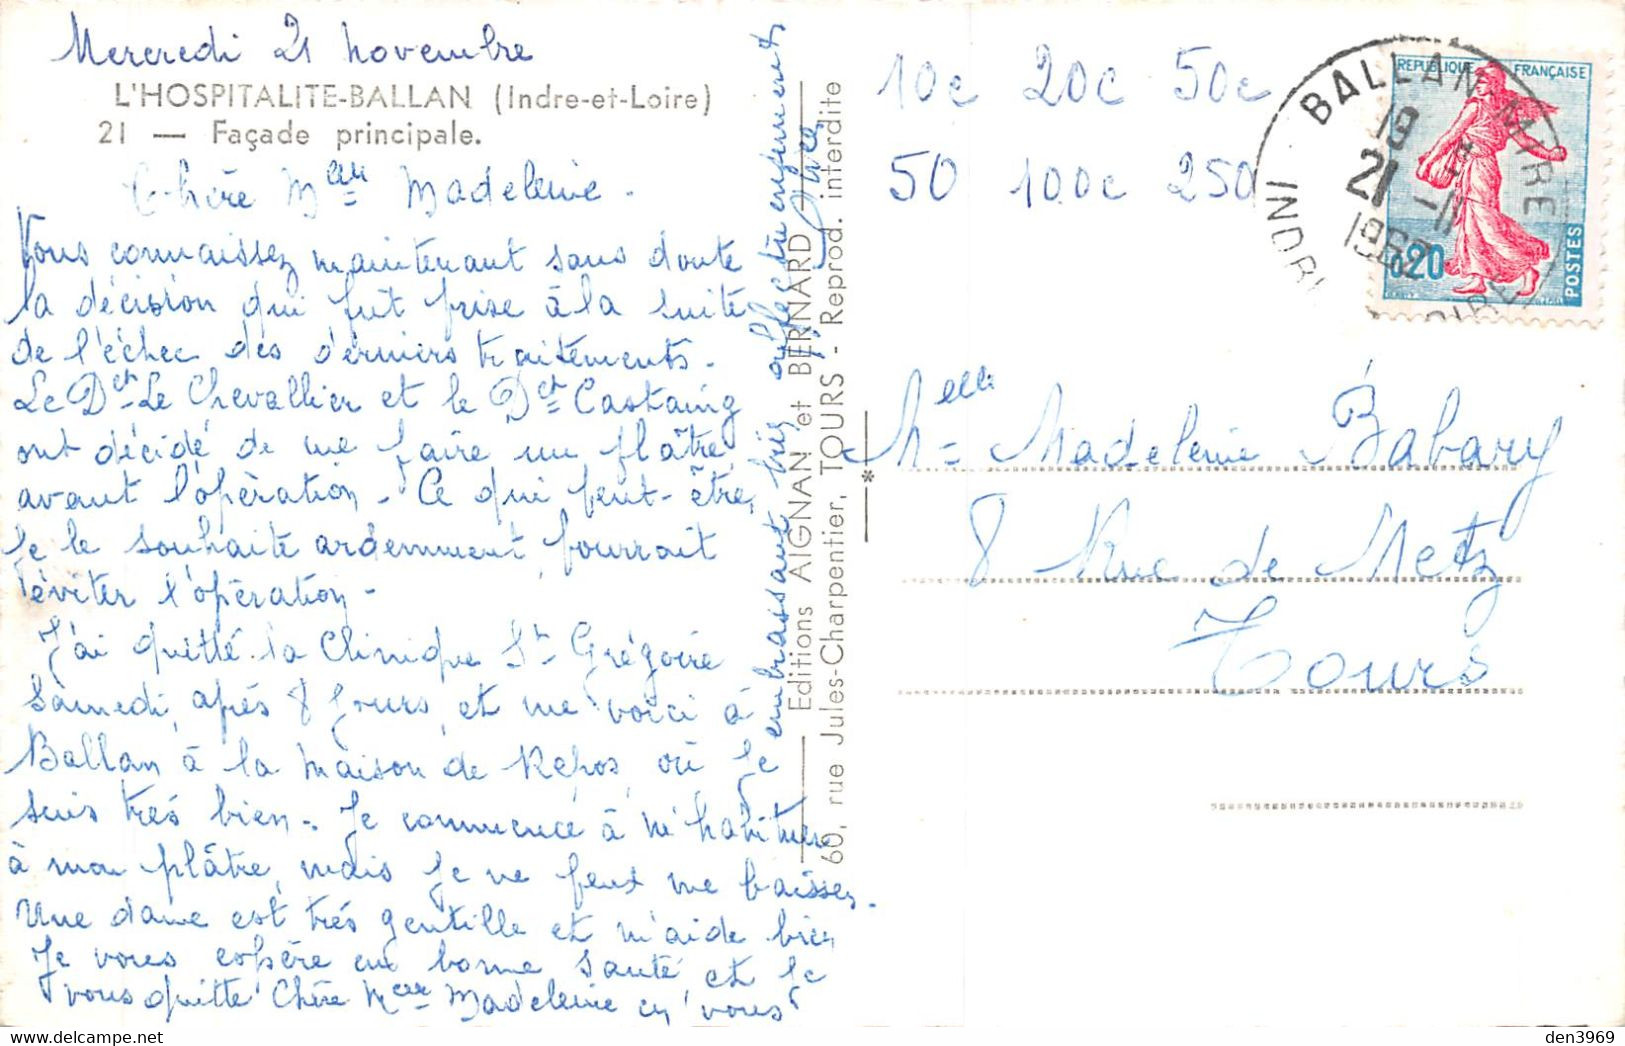 Mercredi 21 novembre
L'HOSPITALITE-BALLAN (Indre-et-Loire)
21 — Façade principale.
Chère Melle Madeleine -
Vous connaissez maintenant sans doute
la décision qui fut prise à la suite
de l'échec des derniers traitements.
Le Dct Le Chevallier et le Dct Castaing
ont décidé de me faire un plâtre
avant l'opération - Ce qui peut-être,
je le souhaite ardemment, pourrait
éviter l'opération -
J'ai quitté la Clinique St Grégoire
Samedi, après 8 jours, et me voici à
Ballan, à la maison de Repos, où je
suis très bien - Je commence à m'habituer
à mon plâtre, mais je ne peux me baisser -
Une dame est très gentille et m'aide bien
Je vous espère en bonne santé et je
vous quitte Chère Melle Madeleine en vous
embrassant bien affectueusement
Editions AIGNAN et BERNARD
60, rue Jules-Charpentier, TOURS - Reprod. interdite
10c 20c 50c
50 100c 250
REPUBLIQUE FRANÇAISE
0,20
POSTES
BALLAN-MIRE
19
21 -11
1962
INDRE
LOIRE
Melle Madeleine Babary
8 Rue de Metz
Tours
den3969